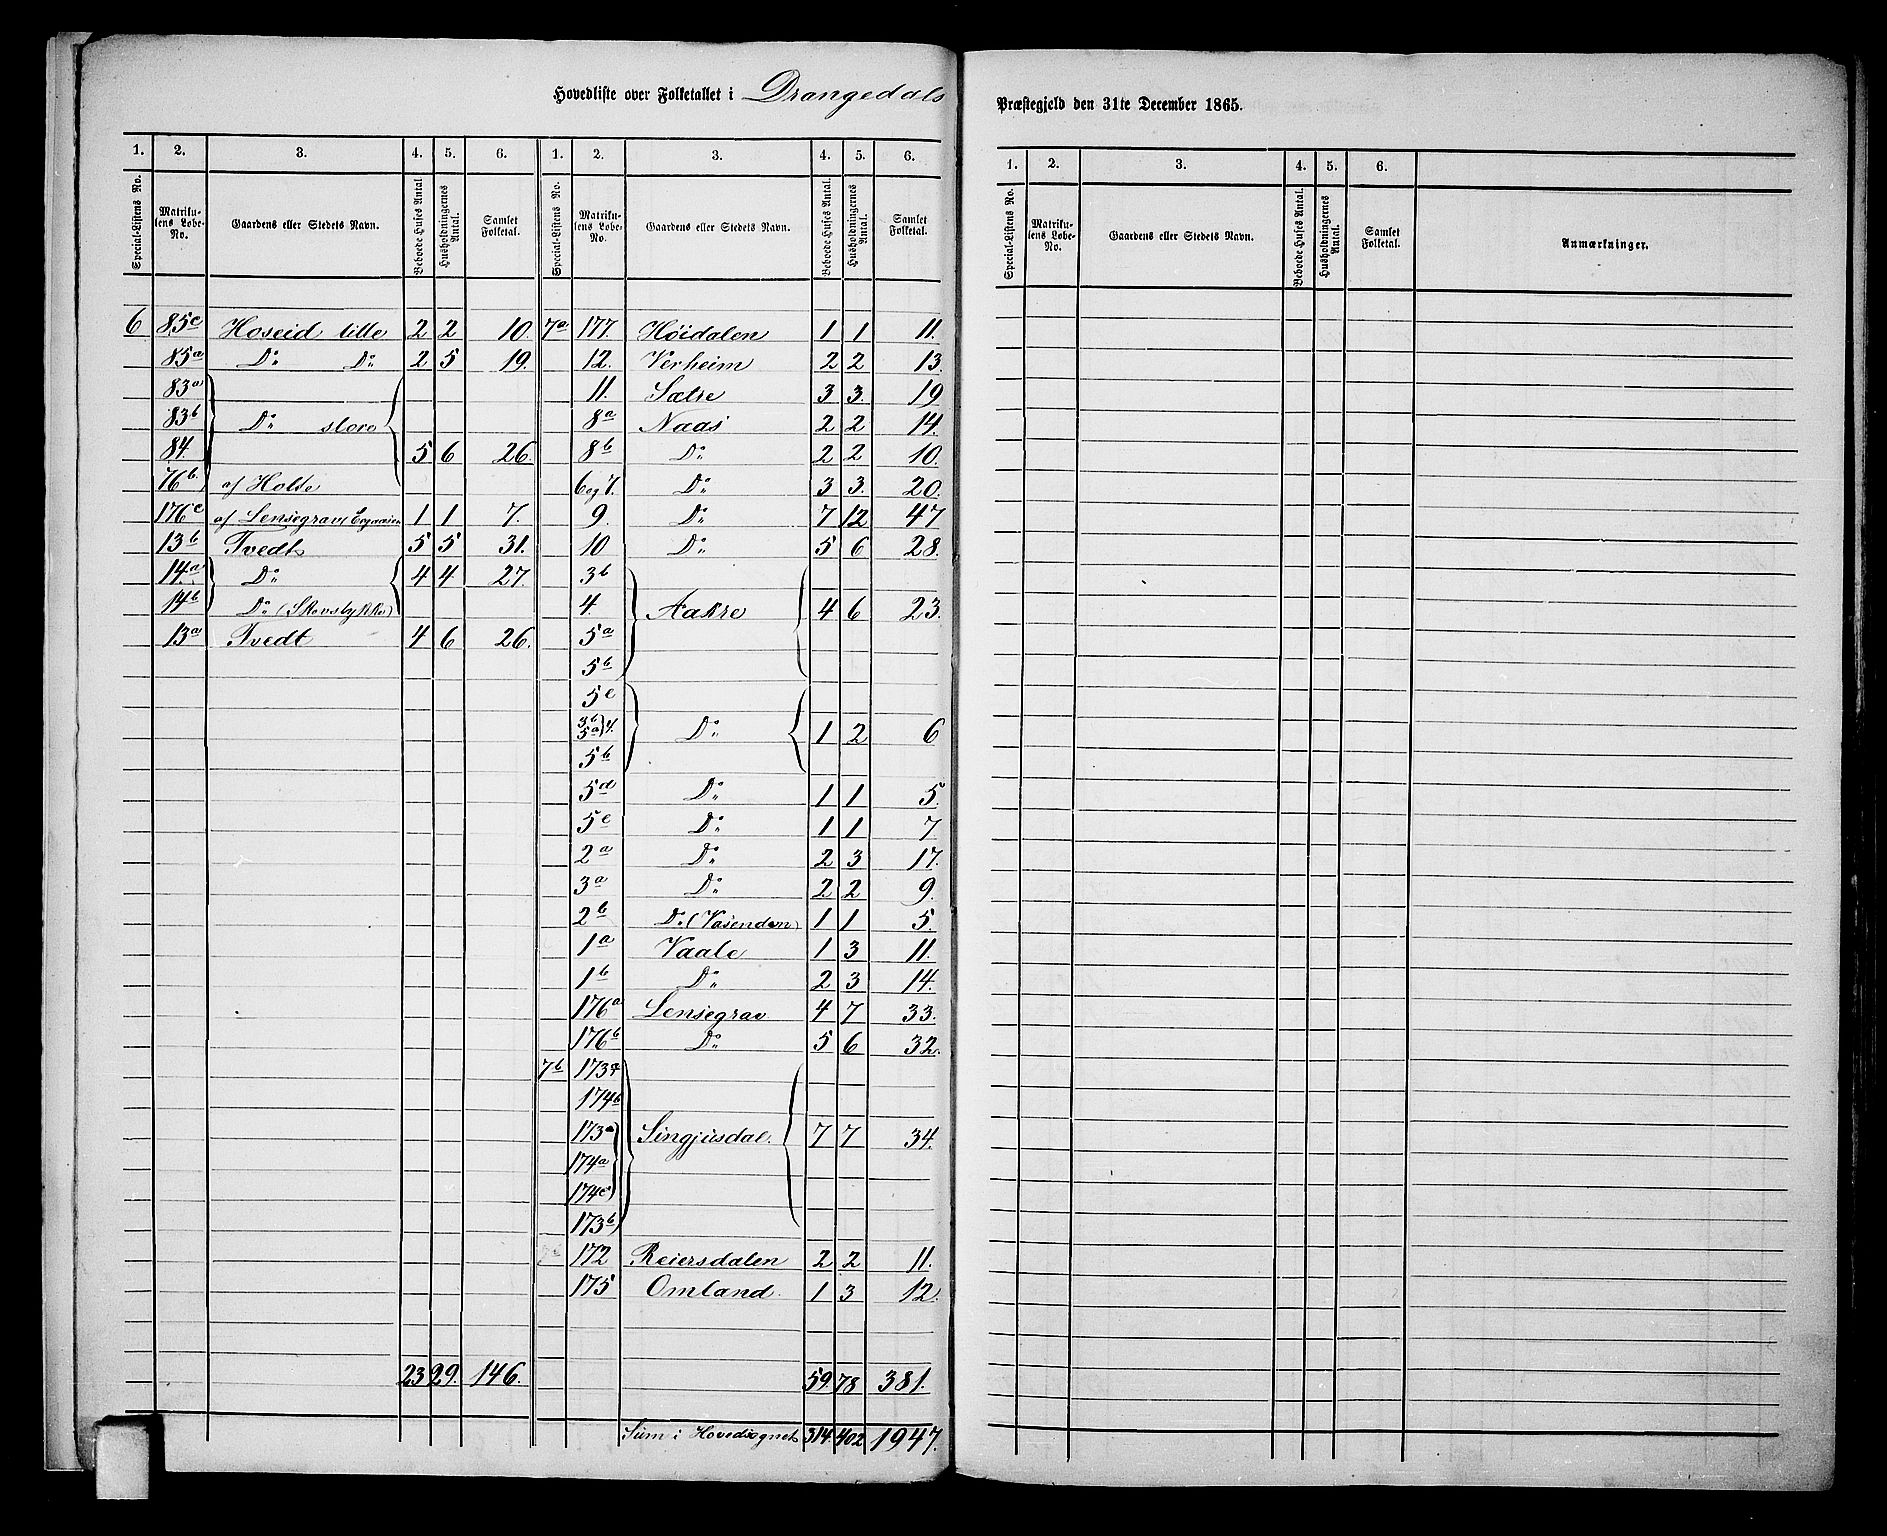 Hovedliste over Folketallet i Drangedals
Præstegjeld den 31te December 1865.
1. 2. 3. 4. 5. 6. 1. 2. 3. 4. 5. 6.
Special-Listens No. Matrikulens Løbe-No. Gaardens eller Stedets Navn. Beboede Huses Antal. Husholdningernes Antal. Samlet Folketal. Special-Listens No. Matrikulens Løbe-No. Gaardens eller Stedets Navn. Beboede Huses Antal. Husholdningernes Antal. Samlet Folketal.
6 85c Hoseid lille 2 2 10.
85a Do Do 2 5 19.
83a
83b Do store
84. 5 6 26.
76b. af Holte
176c af Lensegrav 1 1 7.
13b Tvedt 5 5 31.
14a Do 4 4 27.
14b Do (Skovstykke)
13a Tvedt 4 6 26.
23 29. 146.
7a 177. Höidalen 1 1 11.
12. Verheim 2 2 13.
11. Sælre 3 3. 19
8a Naas 2 2 14.
8b Do 2 2 10.
6 og 7. Do 3 3. 20.
9. Do 7 12 47
10 Do 5 6 28.
3b
4. Aakre 4 6 23.
5a
5b
5c
3b 5a 4. Do 1 2 6
5b
5d Do 1 1 5.
5e Do 1 1 7
2a Do 2 3 17.
3a Do 2 2 9.
2b Do (Vasenden) 1 1 5.
1a Vaale 1 3 11.
1b Do 2 3 14.
176a Lensegrav 4 7 33.
176b Do 5 6 32.
7b 173
174b
173a Singjusdal. 7 7 34.
174a
174c
173b
172 Reiersdalen 2 2 11.
175 Omland. 1 3 12.
59. 78 381.
Sum i Hovedsognet 314. 402 1947.
1. 2. 3. 4. 5. 6.
Special-Listens No. Matrikulens Løbe-No. Gaardens eller Stedets Navn. Beboede Huses Antal. Husholdningernes Antal. Samlet Folketal. Anmærkninger.